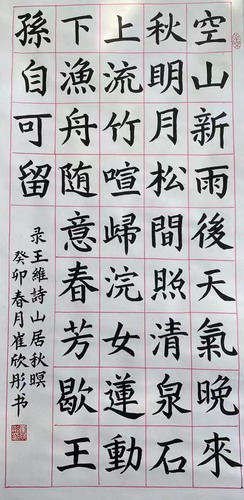 空山新雨後天氣晚來
秋明月松間照清泉石
上流竹喧歸浣女蓮動
下漁舟随意春芳歇王
孫自可留
录王維詩山居秋暝
癸卯春月崔欣彤书